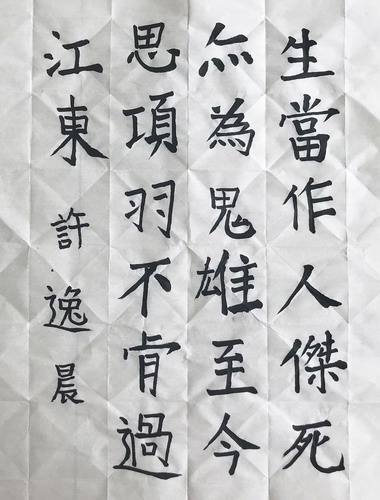 生當作人傑死
亦為鬼雄至今
思項羽不肯過
江東 許逸晨